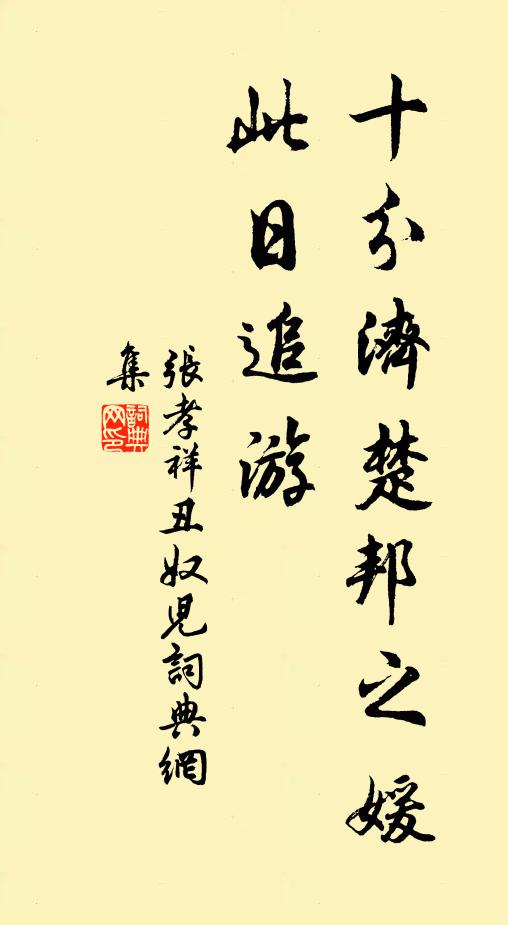 十分濟楚邦之媛
此日追游
張孝祥丑奴兒詞典網
集
詞典
网印